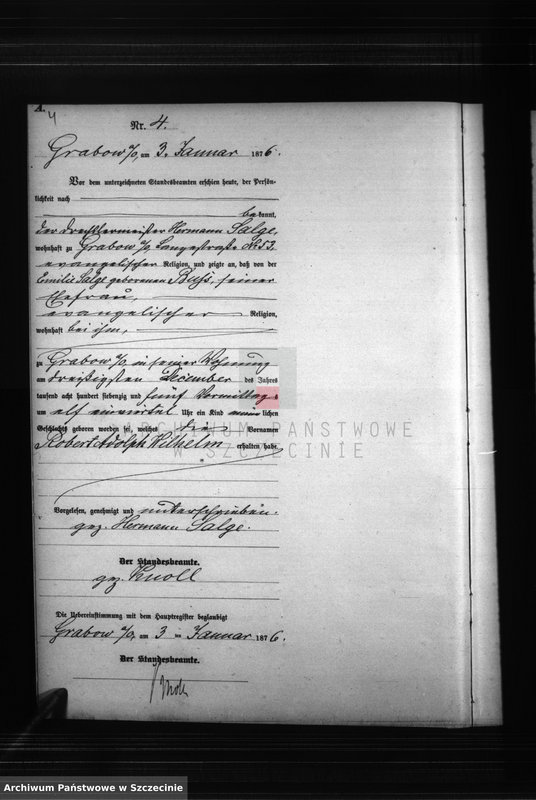 A.
4
Nr. 4.
Grabow a/O, am 3. Januar 1876.
Vor dem unterzeichneten Standesbeamten erschien heute, der Persön-
lichkeit nach
bekannt,
der Drechslermeister Hermann Salge,
wohnhaft zu Grabow a/O Langestraße No 53,
evangelischer Religion, und zeigte an, daß von der
Emilie Salge geborenen Buß, seiner
Ehefrau,
evangelischer Religion,
wohnhaft bei ihm,
zu Grabow a/O, in seiner Wohnung
am dreißigsten December des Jahres
tausend acht hundert siebenzig und fünf Vormittags
um elf einviertel Uhr ein Kind männlichen
Geschlechts geboren worden sei, welches die Vornamen
Robert Adolph Wilhelm erhalten habe.
Vorgelesen, genehmigt und unterschrieben.
gez. Hermann Salge.
Der Standesbeamte.
gez Knoll
Die Uebereinstimmung mit dem Hauptregister beglaubigt
Grabow a/O, am 3 ten Januar 1876.
Der Standesbeamte.
Knoll
ARCHIWUM PAŃSTWOWE
W SZCZECINIE
Archiwum Państwowe w Szczecinie